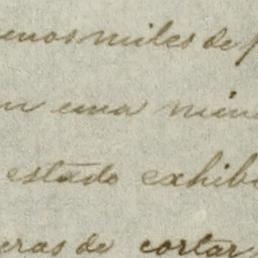 unos miles de
en una min
estado exhib
eras de cortar